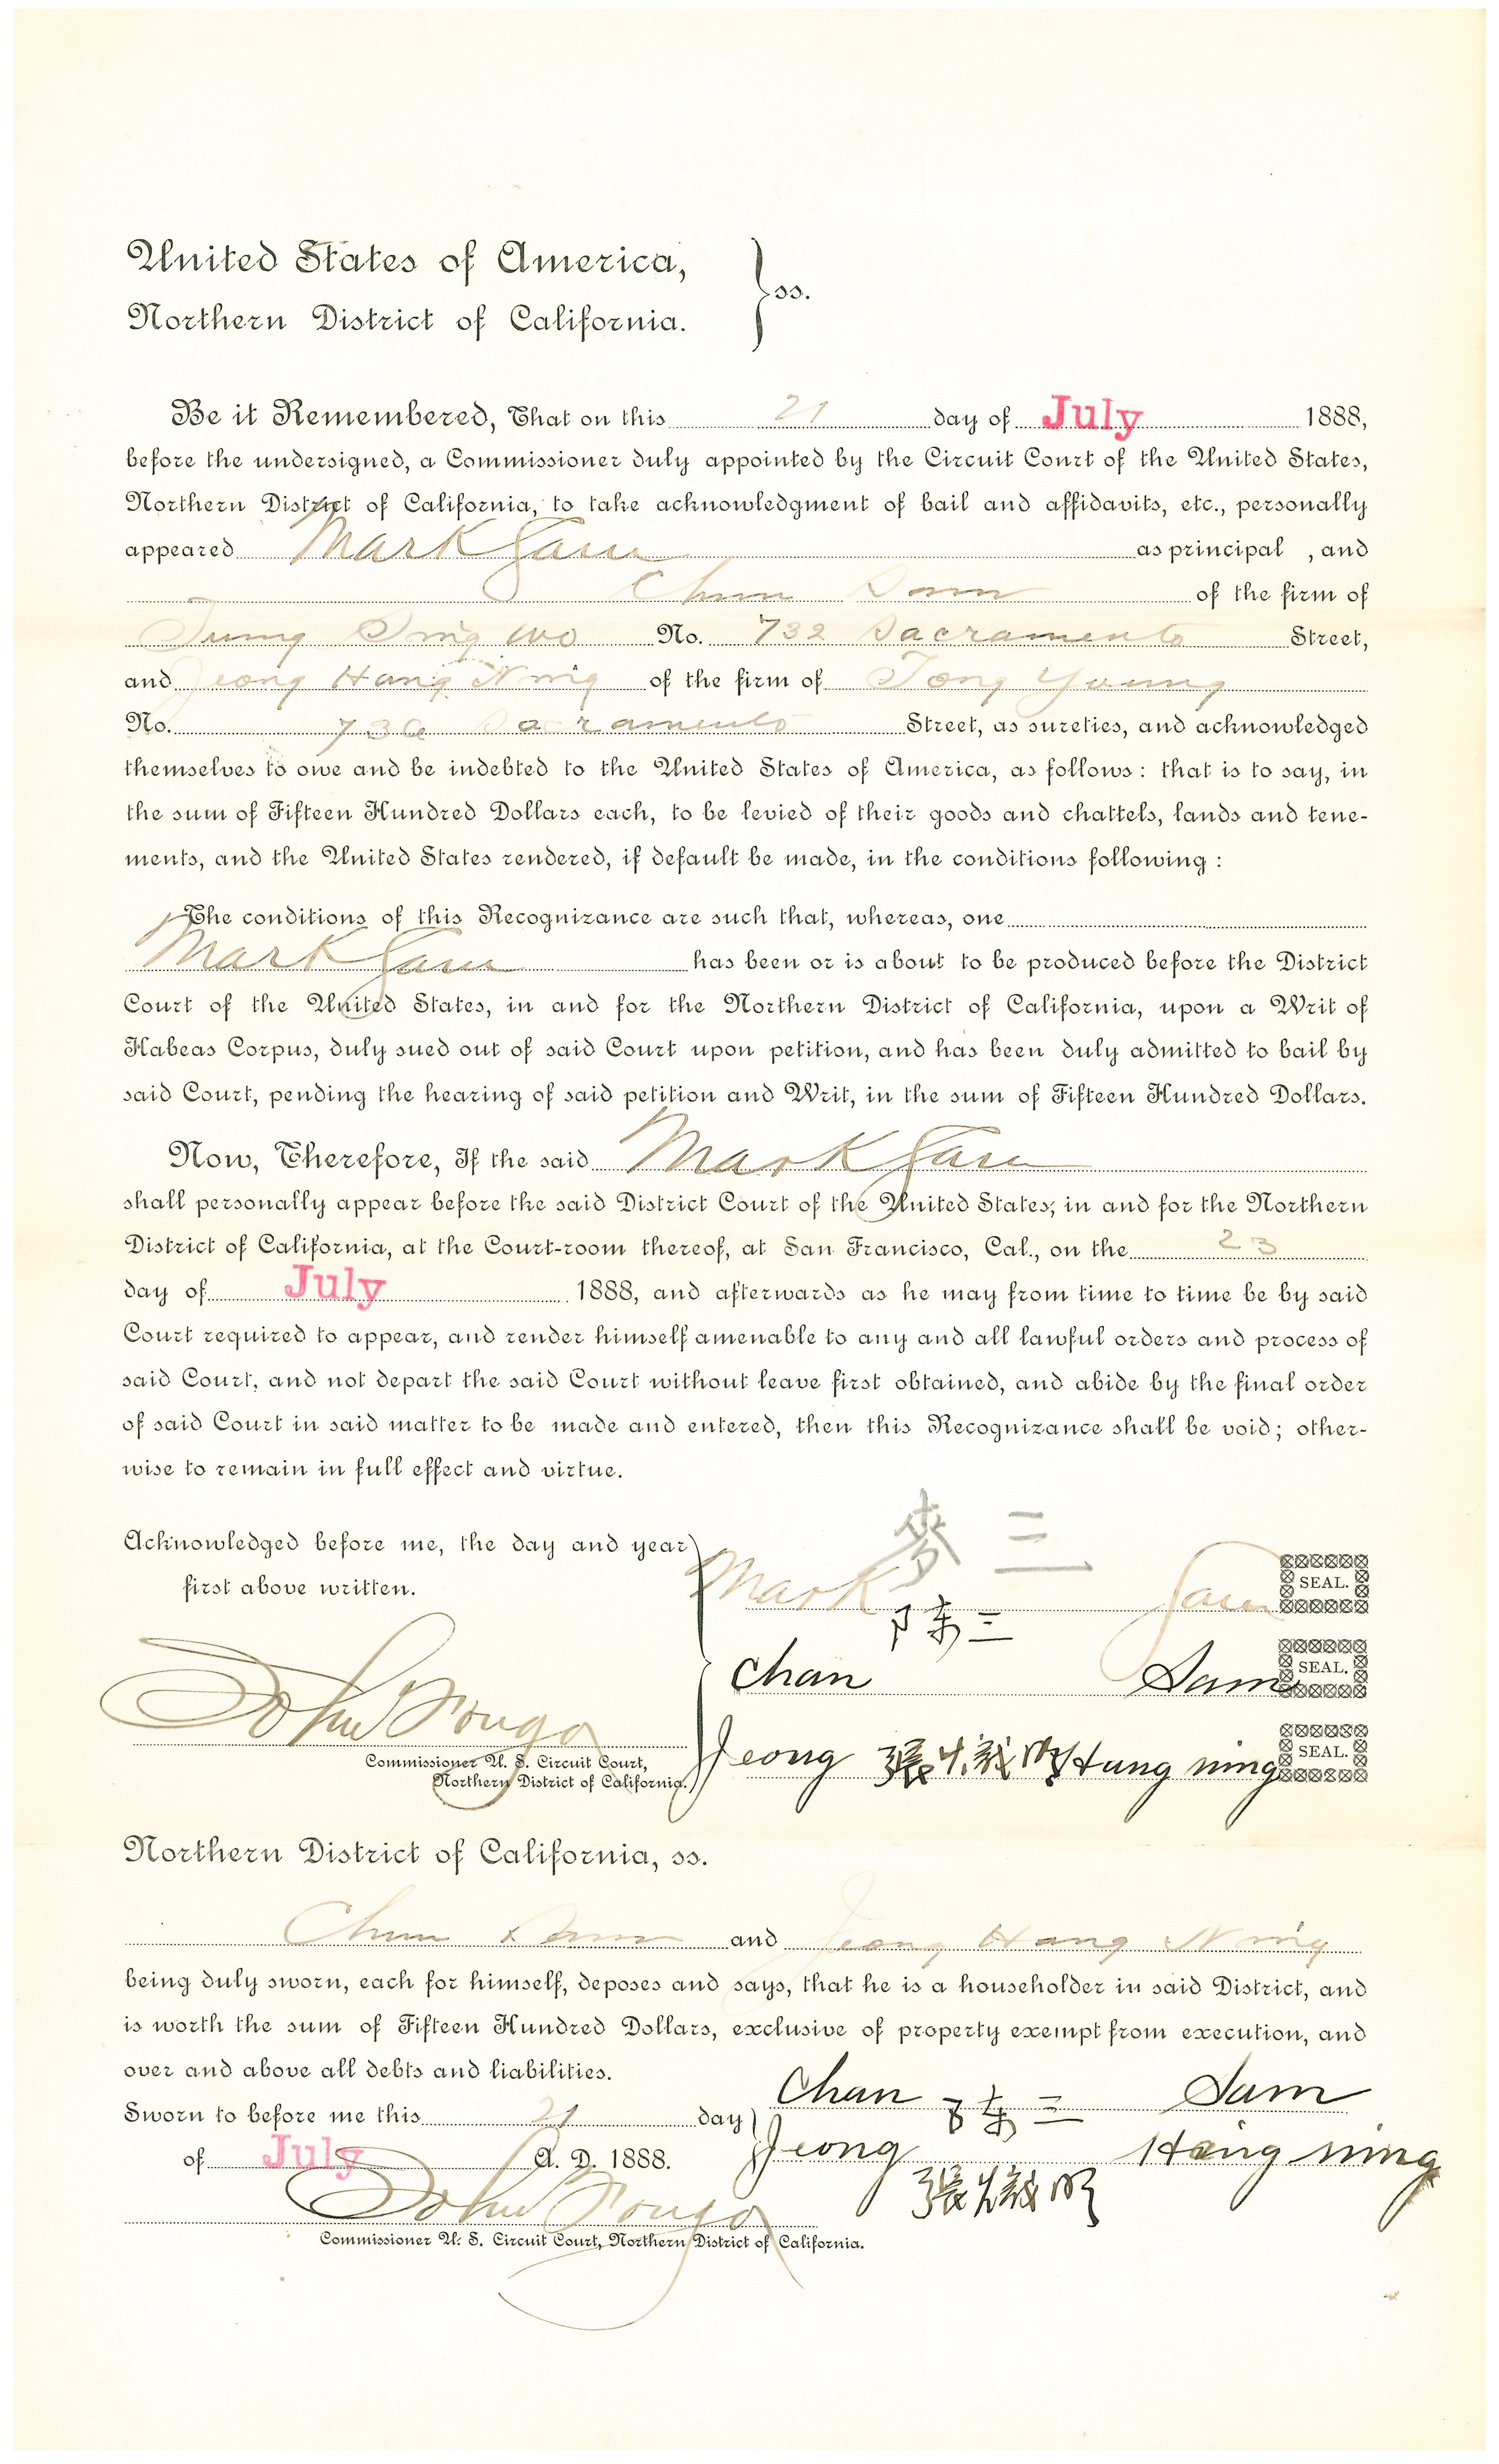 United States of America,
Northern District of California. } ss.
Be it Remembered, That on this 21 day of July 1888,
before the undersigned, a Commissioner duly appointed by the Circuit Court of the United States,
Northern District of California, to take acknowledgment of bail and affidavits, etc., personally
appeared Mark Sam as principal , and
Chun Sam of the firm of
Tung Sing Wo No. 732 Sacramento Street,
and Jeong Hang Ning of the firm of Tong Young
No. 736 Sacramento Street, as sureties, and acknowledged
themselves to owe and be indebted to the United States of America, as follows: that is to say, in
the sum of Fifteen Hundred Dollars each, to be levied of their goods and chattels, lands and tene-
ments, and the United States rendered, if default be made, in the conditions following:
The conditions of this Recognizance are such that, whereas, one
Mark Sam has been or is about to be produced before the District
Court of the United States, in and for the Northern District of California, upon a Writ of
Habeas Corpus, duly sued out of said Court upon petition, and has been duly admitted to bail by
said Court, pending the hearing of said petition and Writ, in the sum of Fifteen Hundred Dollars.
Now, Therefore, If the said Mark Sam
shall personally appear before the said District Court of the United States, in and for the Northern
District of California, at the Court-room thereof, at San Francisco, Cal., on the 23
day of July 1888, and afterwards as he may from time to time be by said
Court required to appear, and render himself amenable to any and all lawful orders and process of
said Court, and not depart the said Court without leave first obtained, and abide by the final order
of said Court in said matter to be made and entered, then this Recognizance shall be void; other-
wise to remain in full effect and virtue.
Acknowledged before me, the day and year
first above written.
麥 三
Mark Sam SEAL.
陳三
Chan Sam SEAL.
John
Commissioner U. S. Circuit Court,
Northern District of California.
Jeong 張 明 Hang ning SEAL.
Northern District of California, ss.
Chun Sam and Jeong Hang Ning
being duly sworn, each for himself, deposes and says, that he is a householder in said District, and
is worth the sum of Fifteen Hundred Dollars, exclusive of property exempt from execution, and
over and above all debts and liabilities.
Sworn to before me this 21 day
of July A. D. 1888.
Chan 陳三 Sam
Jeong Hang ning
張 明
John
Commissioner U. S. Circuit Court, Northern District of California.